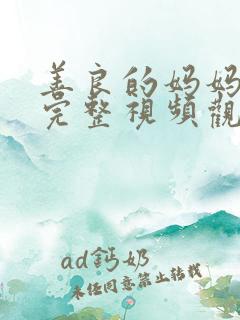 善良的妈妈
完整視頻觀
ad鈣奶
未任同意禁止转载